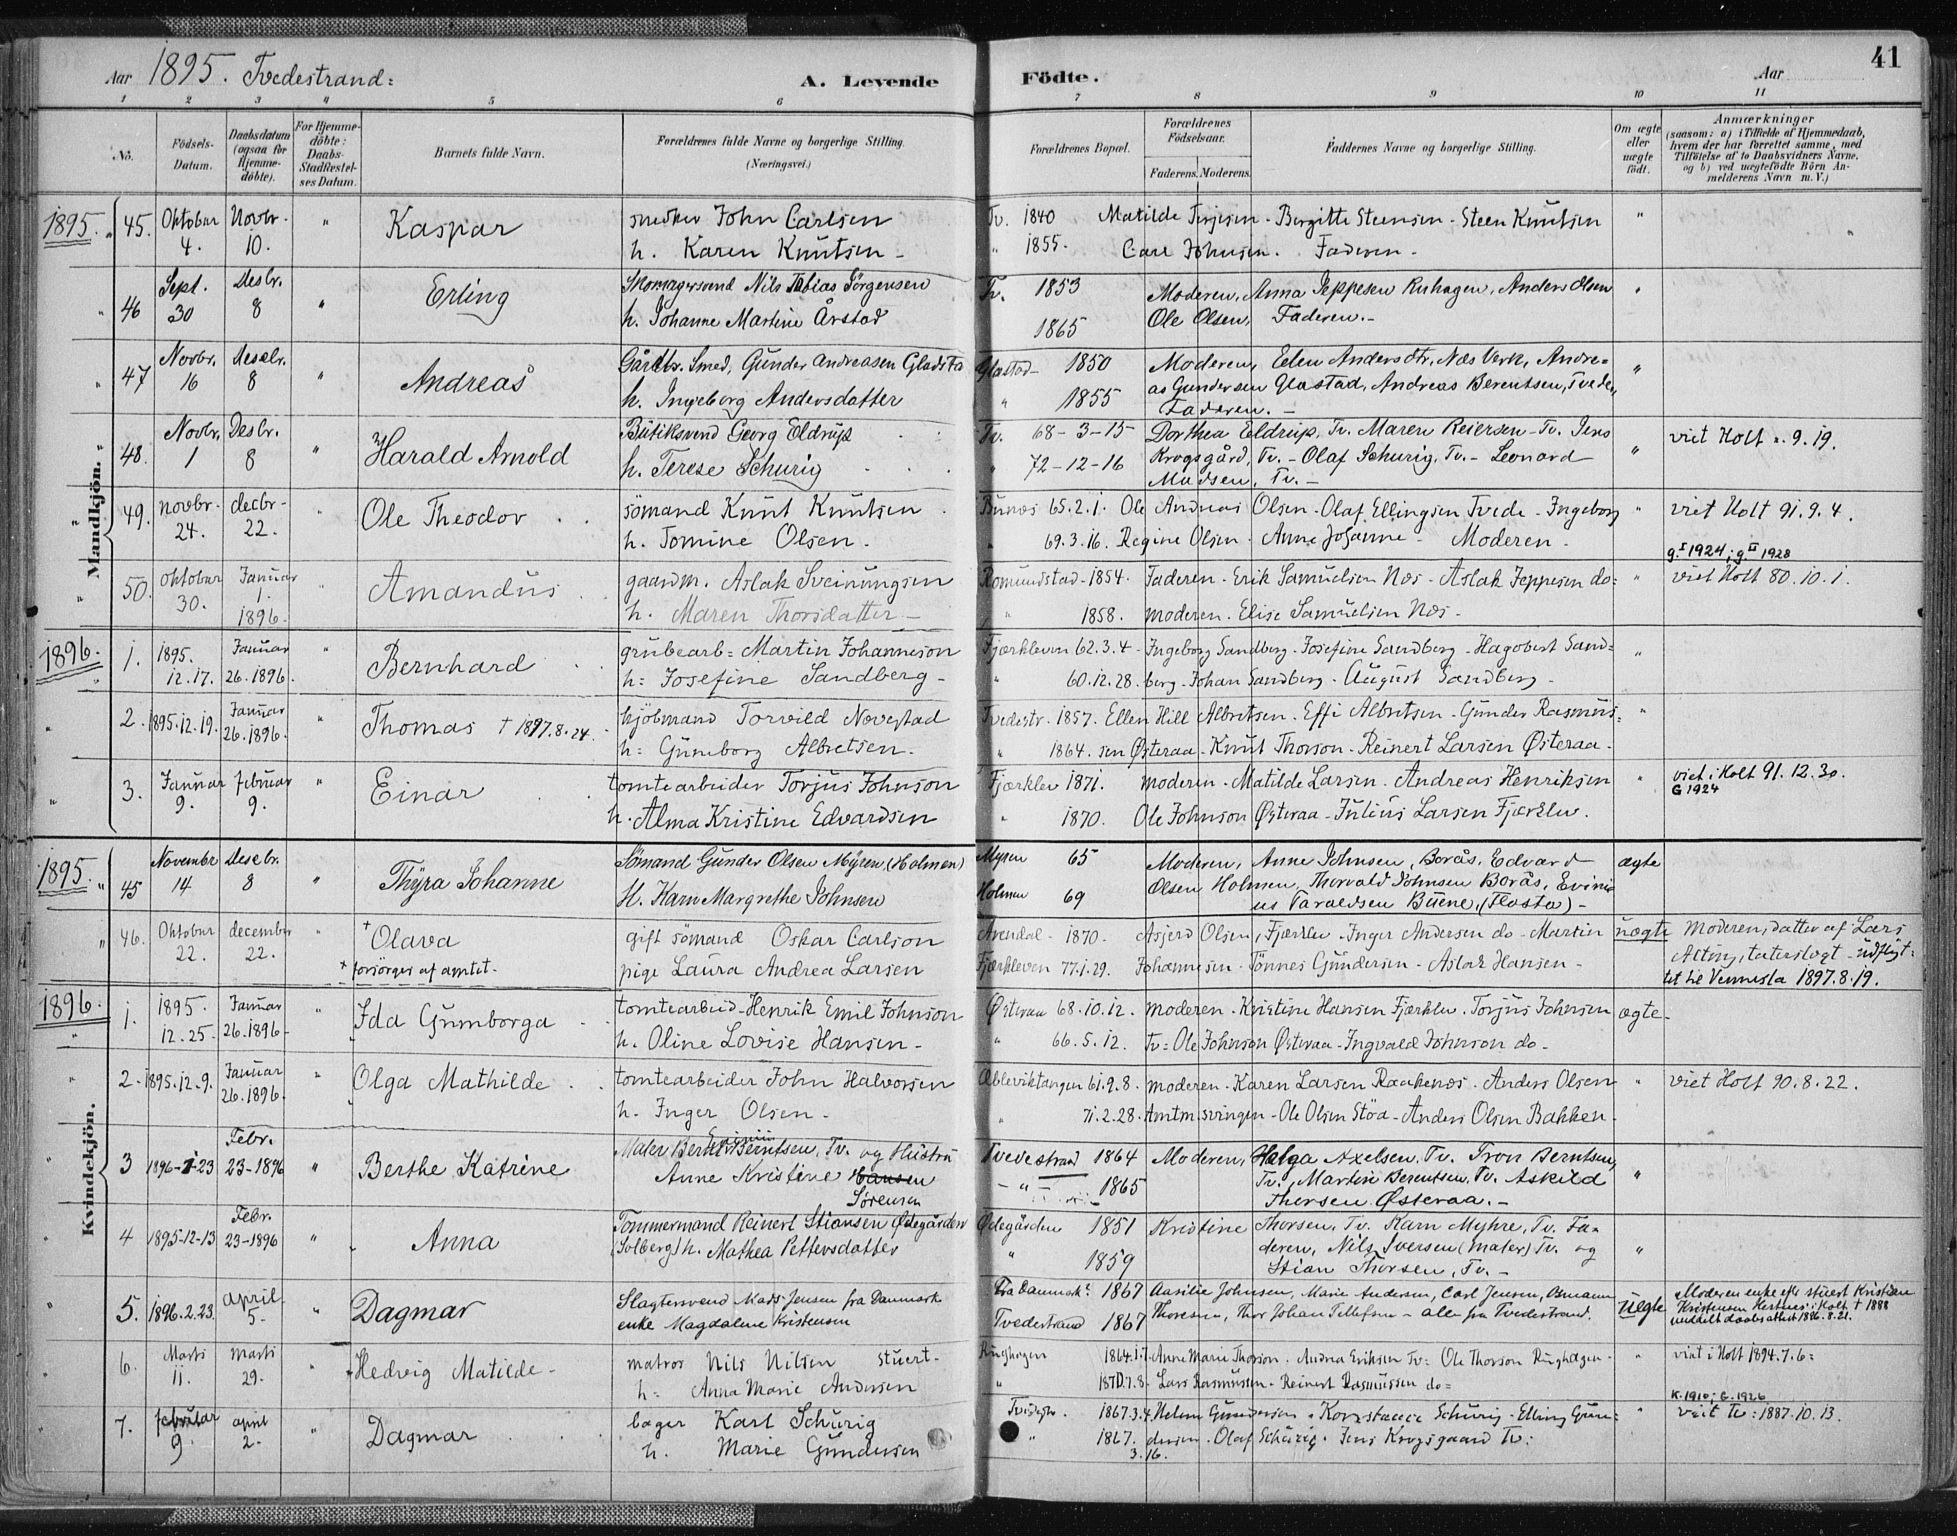 41
Aar 1895. Tvedestrand: A. Levende Födte. Aar
1 2 3 4 5 6 7 8 9 10 11
No. Födsels-Datum. Daabsdatum (ogsaa for Hjemme-döbte). For Hjemme-döbte: Daabs-Stadfæstel-ses Datum. Barnets fulde Navn. Forældrenes fulde Navne og borgerlige Stilling. (Næringsvei.) Forældrenes Bopæl. Forældrenes Födselsaar. Faderens. Moderens. Faddernes Navne og borgerlige Stilling. Om ægte eller uægte födt. Anmærkninger (saasom: a) i Tilfælde af Hjemmedaab, hvem der har forrettet samme, med Tilföielse af to Daabsvidners Navne, og b) ved uægtefödte Börn An-melderens Navn m. V.)
Mandkjön.
1895. " 45. Oktobur Novbr. " Kaspar snedker John Carlsen Tv. 1840 Matilde Terjesen - Bergitte Steensen - Steen Knutsen "
4. 10. h. Karen Knutsen - " 1855. Carl Johnsen. Faderen -
" 46 Sept. Desbr. " Erling Skomagersvend Nils Tobias Jörgensen Tv. 1853 Moderen, Anna Jeppesen Ruhagen, Anders Olsen "
30 8 h. Johanne Martine Årstad 1865 Ole Olsen, Faderen. -
" 47 Novbr. Desebr. " Andreas Gårdbr. Smed, Gunder Andreasen Gladstad Glastad 1850 Moderen, Eden Andersdtr, Næs Verk, Andre= "
16 8 h. Ingeborg Andersdatter " 1855 as Gundersen Glastad, Andreas Berentsen, Tvede,
Faderen. -
" 48. Novbr. Desbr. " Harald Arnold Butiksvend Georg Eldrup Tv. 68-3-15 Dorthea Eldrup, Tv. Maren Reiersen - Tv. Jens " viet Holt 9.19.
1 8 h. Terese Schurig " 72-12-16 Krogsgård, Tv. - Olaf Schurig, Tv. - Leonard
Madsen, Tv. -
" 49. novbr. decbr. Ole Theodor sömand Knut Knutsen Bunæs 65.2.1. Ole Andreas Olsen - Olaf Ellingsen Tvede - Ingeborg " viet Holt 91.9.4.
24. 22. h. Tomine Olsen. " 69.3.16. Regine Olsen - Anne Johanne - Moderen -
g. I 1924; g II 1928
" 50. oktobur Januar Amandus gaardm. Aslak Sveinungsen Romundstad - 1854. Faderen - Erik Samuelsen Næs - Aslak Jeppesen do - " viet Holt 80.10.1.
30. 1. 1896. h. Maren Thorsdatter - " 1858. moderen - Elise Samuelsen Næs -
1896. " 1. 1895. Januar " Bernhard grubearb= Martin Johanneson Fjærkleven 62.3.4 - Ingeborg Sandberg - Josefine Sandberg - Hagobert Sand= "
12.17. 26.1896. h= Josefine Sandberg - " 60.12.28. berg - Johan Sandberg - August Sandberg -
" 2. 1895.12.19. Januar " Thomas † 1897.8.24. kjöbmand Torvild Novestad Tvedestr. 1857. Ellen Hill Albretsen - Effi Albretsen - Gunder Rasmus= "
26.1896. h= Guneborg Albretsen. " 1864. sen Østeraa - Knut Thorson - Reinert Larsen Østeraa -
" 3. Januar februar " Einar tomtearbeider Torjus Johnson Fjærklev 1871. moderen - Matilde Larsen - Andreas Henriksen " viet i Holt 91.12.30.
9. 9. h. Alma Kristine Edvardsen " 1870. Ole Johnson Østeraa - Julius Larsen Fjærklev. G 1924
Kvindekjön.
1895. " 45 Novembr Desebr. " Thyra Johanne Sömand Gunder Olsen Myren, (Holmen) Myren 65 Moderen, Anne Johnsen, Borås, Edvard ægte
14 8 H. Karn Margrethe Johnsen Holmen 69 Olsen Holmen, Thorvald Johnsen Borås, Evini
us Taraldsen Buene, (Flosta) -
" 46. Oktobur december " †Olava gift sömand Oskar Carlson Arendal - 1870. Asjerd Olsen, Fjærklev - Inger Andersen do - Martin uægte Moderen, datter af Lars
22. 22. † forsörges af amtet. pige Laura Andrea Larsen Fjærkleven 77.1.29. Johannesen - Tönnes Gundersen - Aslak Hansen - taterslegt - udflyt:
tet til Vennesla 1897.8.19.
1896. " 1. 1895. Januar " Ida Gunborga tomtearbeid - Henrik Emil Johnson Østeraa 68.10.12. moderen - Kristine Hansen Fjærklev. Torjus Johnsen ægte
12.25. 26.1896. h. Oline Lovise Hansen - " 66.5.12. Tv= Ole Johnson Østeraa - Ingvald Johnson do -
" 2. 1895.12.9. Januar " Olga Mathilde tomtearbeider John Halvorsen Ableviktangen 61.9.8. moderen - Karen Larsen Raakenæs - Anders Olsen " viet Holt 90.8.22.
26.1896. h. Inger Olsen - " 71.2.28. Amtm.svingen - Ole Olsen Stöa - Anders Olsen Bakken -
" 3 1896-1-23 Febr. 23-1896 " Berthe Katrine Maler Bernt Berntsen, Tv. og Hustru Tvedestrand 1864 Moderen, Helga Axelsen, Tv. Tron Berntsen, "
Anne Kristine Hansen Sörensen " 1865 Tv. Martin Berentsen, Tv. Askild
Thorsen Østeraa. -
" 4 1895-12-13 Febr. 23-1896 " Anna Tommermand Reinert Stiansen Ødegården Ødegården 1851 Kristine Thorsen, Tv. Karn Myhre, Tv. Fa=
(Solberg) h. Mathea Pettersdatter " 1859 deren, Nils Iversen (maler) Tv. og "
Stian Thorsen, Tv. -
" 5. 1896.2.23. April 5. " Dagmar Slagtersvend Mads Jensen fra Danmark Fra Danmark 1867 Aasilie Johnsen, Marie Andersen, Carl Jensen, Osmann Uægte Moderen enke eft. stuert Kristian
enke Magdalene Kristensen Tvedestrand 1867 Thoresen, Thor Johan Tellefsen - alle fra Tvedestrand. Kristensen i Holt † 1888
meddelt daabsattest 1896.8.21.
" 6. Marts marts " Hedvig Matilde - matros Nils Nilsen stuert - Ringhagen 1864.1.7. Anne Marie Thorson. Andrea Eriksen Tv= Ole Thorson Ringhagen - " viet i Holt 1894.7.6=
11. 29. h= Anna Marie Andersen " 1870.7.8. Lars Rasmussen - Reinert Rasmussen do=
K. 1910; G. 1926
" 7. februar april Dagmar bager Karl Schurig Tvedestr. 1867.3.4. Helene Gundersen - Konstance Schurig - Elling Gun= " veit Tv: 1887.10.13.
9 2. h. Marie Gundersen " 1867. dersen - Olaf Schurig - Jens Krogsgaard Tv:
3.16.